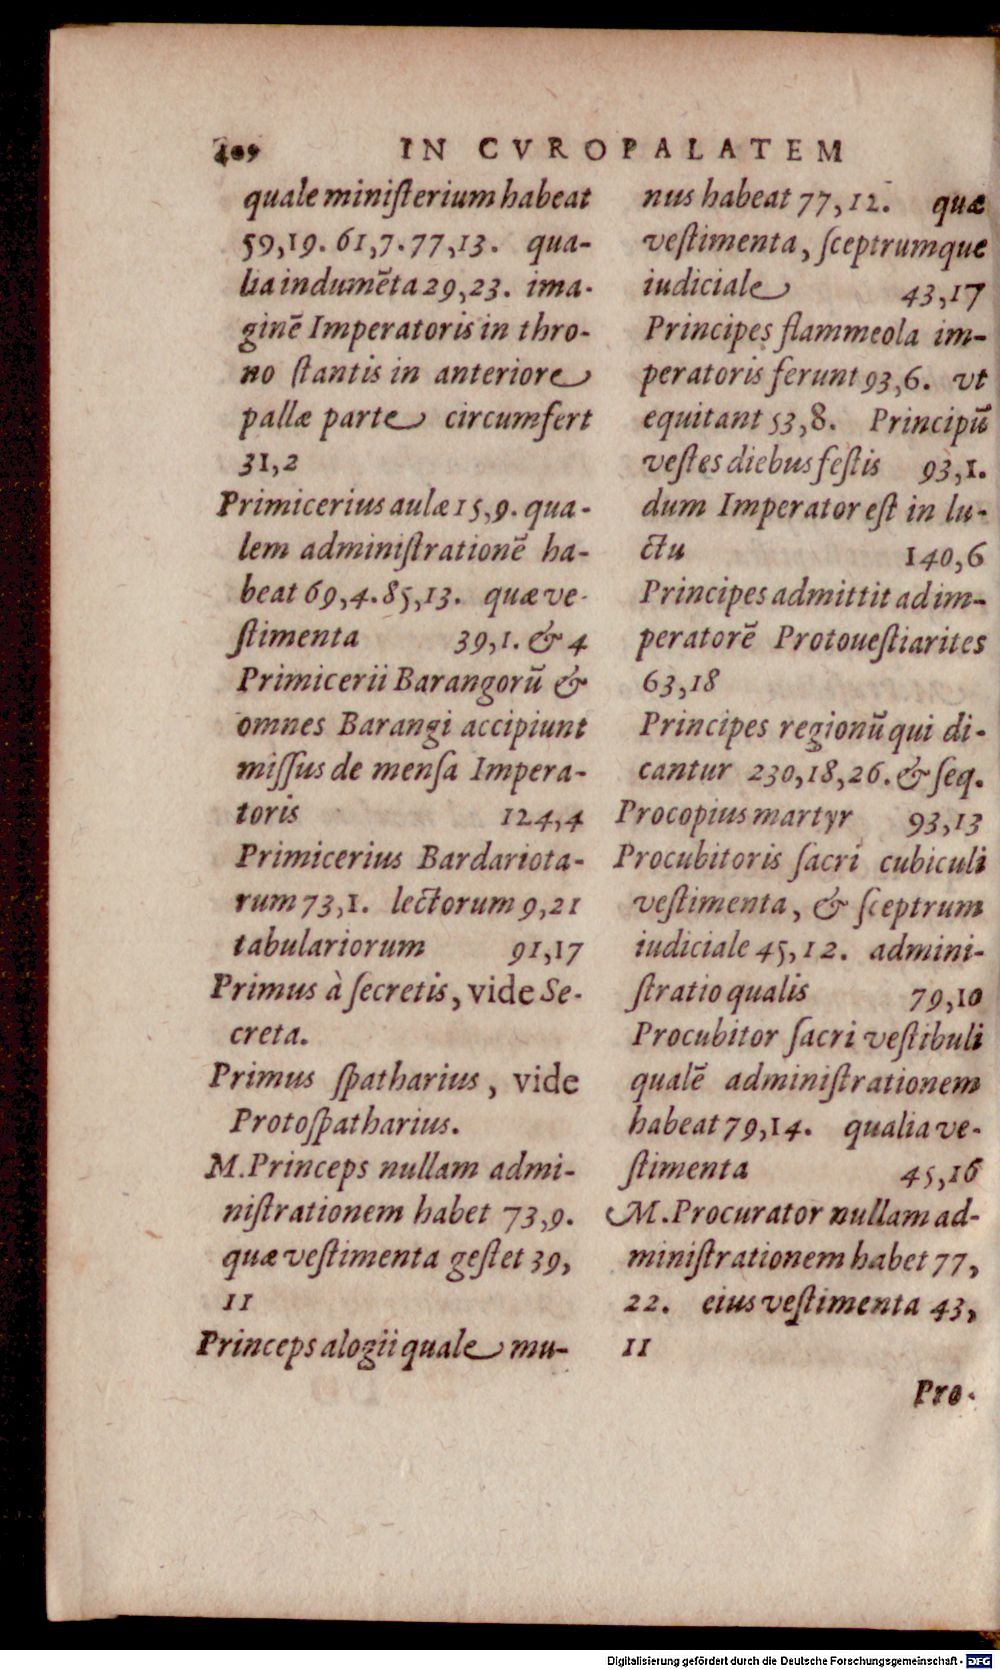 IN CVROPALATEM
quale miniſterium habeat
59,19. 61,7. 77,13. qua-
lia indumēta 29,23. ima-
ginē Imperatoris in thro-
no ſtantis in anteriore
pallæ parte circumfert
31,2
Primicerius aulæ 15,9. qua-
lem adminiſtrationē ha-
beat 69,4. 85,13. quæ ve-
ſtimenta 39,1. & 4
Primicerii Barangorū &
omnes Barangi accipiunt
miſſus de menſa Impera-
toris 124,4
Primicerius Bardariota-
rum 73,1. lectorum 9,21
tabulariorum 91,17
Primus à ſecretis, vide Se-
creta.
Primus ſpatharius, vide
Protoſpatharius.
M. Princeps nullam admi-
niſtrationem habet 73,9.
quæ veſtimenta geſtet 39,
11
Princeps alogii quale mu-
nus habeat 77,12. quæ
veſtimenta, ſceptrumque
iudiciale 43,17
Principes flammeola im-
peratoris ferunt 93,6. vt
equitant 53,8. Principū
veſtes diebus feſtis 93,1.
dum Imperator eſt in lu-
ctu 140,6
Principes admittit ad im-
peratorē Protoueſtiarites
63,18
Principes regionū qui di-
cantur 230,18,26. & ſeq.
Procopius martyr 93,13
Procubitoris ſacri cubiculi
veſtimenta, & ſceptrum
iudiciale 45,12. admini-
ſtratio qualis 79,10
Procubitor ſacri veſtibuli
qualē adminiſtrationem
habeat 79,14. qualia ve-
ſtimenta 45,16
M. Procurator nullam ad-
miniſtrationem habet 77,
22. eius veſtimenta 43,
11
Pro-
Digitalisierung gefördert durch die Deutsche Forschungsgemeinschaft - DFG